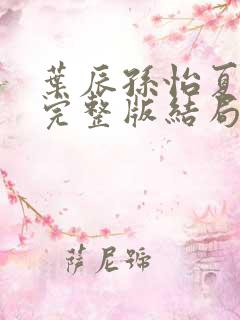 葉辰孫怡夏
完整版結局
萨尼號